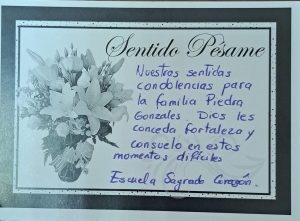 Sentido Pésame
Nuestras sentidas
condolencias para
la familia Piedra
Gonzales Dios les
conceda fortaleza y
consuelo en estos
momentos difíciles
Escuela Sagrado Corazón.